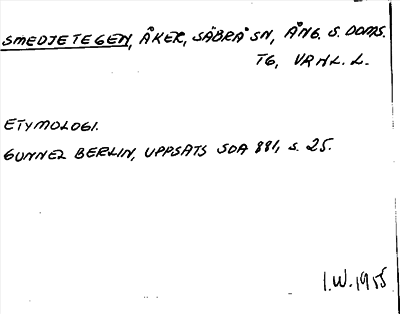 SMEDJETEGEN, ÅKER, SÄBRÅ SN, ÅNG. S. DOMS.
TG, VRNL. L.
ETYMOLOGI.
GUNNEL BERLIN, UPPSATS SOA 881, S. 25.
I.W. 1955